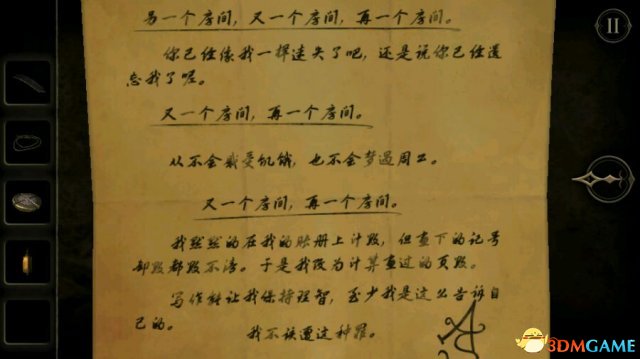 另一个房间，又一个房间，再一个房间。
你已经像我一样迷失了吧，还是说你已经遗
忘我了呢。
又一个房间，再一个房间。
从不会感受饥饿，也不会梦遇周公。
又一个房间，再一个房间。
我默默的在我的账册上计数，但查下的记号
却数都数不清。于是我改为计算查过的页数。
写作能让我保持理智，至少我是这么告诉自
己的。
我不该遭这种罪。
3DMGAME